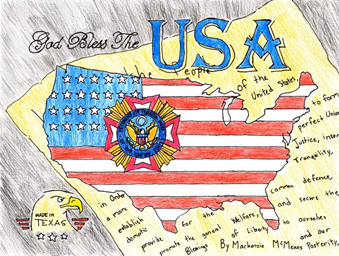 God Bless The USA
We the People
of the United States,
in Order
to form
a more
perfect Union,
establish
Justice, insure
domestic
Tranquility,
provide
for the
common defence,
promote the general
Welfare,
and secure the
Blessings
of Liberty
to ourselves
and our
Posterity,
By Mackenzie McMeans
MADE IN
TEXAS